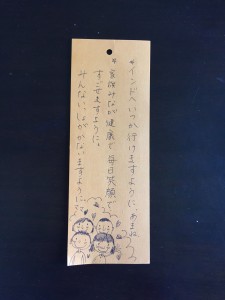 *インドへいつか行けますように。あまね
*家族みなが健康で毎日笑顔で
すごせますように。
みんないしょがかないますように